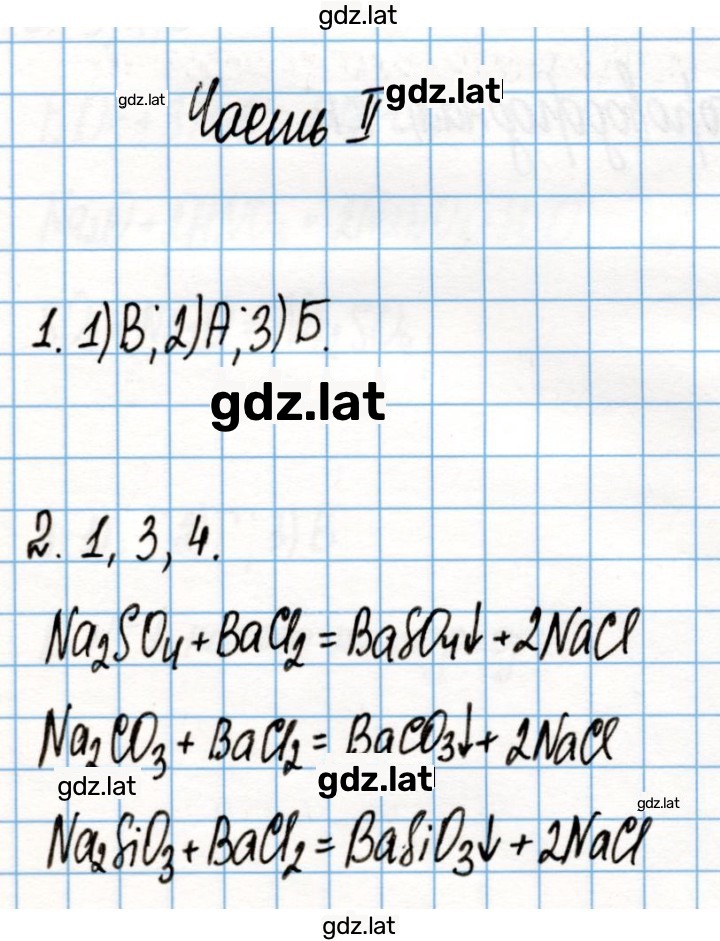 gdz.lat
gdz.lat
Часть II gdz.lat
1. 1) В; 2) А; 3) Б.
gdz.lat
2. 1, 3, 4.
Na₂SO₄ + BaCl₂ = BaSO₄↓ + 2NaCl
Na₂CO₃ + BaCl₂ = BaCO₃↓ + 2NaCl
gdz.lat
gdz.lat
gdz.lat
Na₂SiO₃ + BaCl₂ = BaSiO₃↓ + 2NaCl
gdz.lat